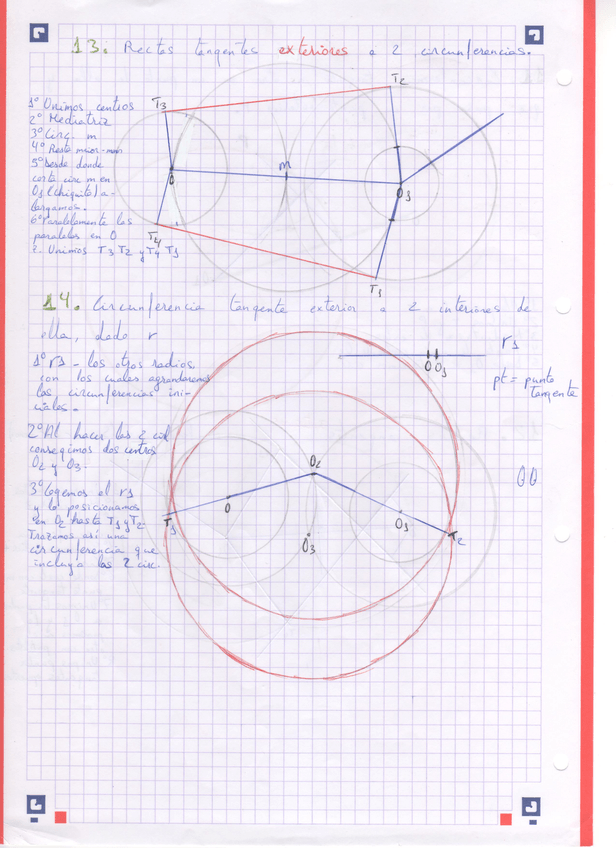 13. Rectas tangentes exteriores a 2 circunferencias.
1º Unimos centros
2º Mediatriz
3º Circ. m
4º Resto mayor-men
5º Desde donde
corta circ m en
O1 (chiquita) a-
largamos.
6º Paralelamente las
paralelas en O
7. Unimos T3 T2 y T4 T1
T3
T2
O
m
O1
T4
T1
14. Circunferencia tangente exterior a 2 interiores de
ella, dado r
1º r1 - los otros radios,
con los cuales agrandaremos
las circunferencias ini-
ciales.
r1
O O1
pt = punto
tangente
2º Al hacer las 2 cir
conseguimos dos centros
O2 y O3.
3º Cogemos el r1
y lo posicionamos
en O2 hasta T1 y T2.
Trazamos así una
circunferencia que
incluya las 2 circ.
O2
O
O1
T1
T2
O3